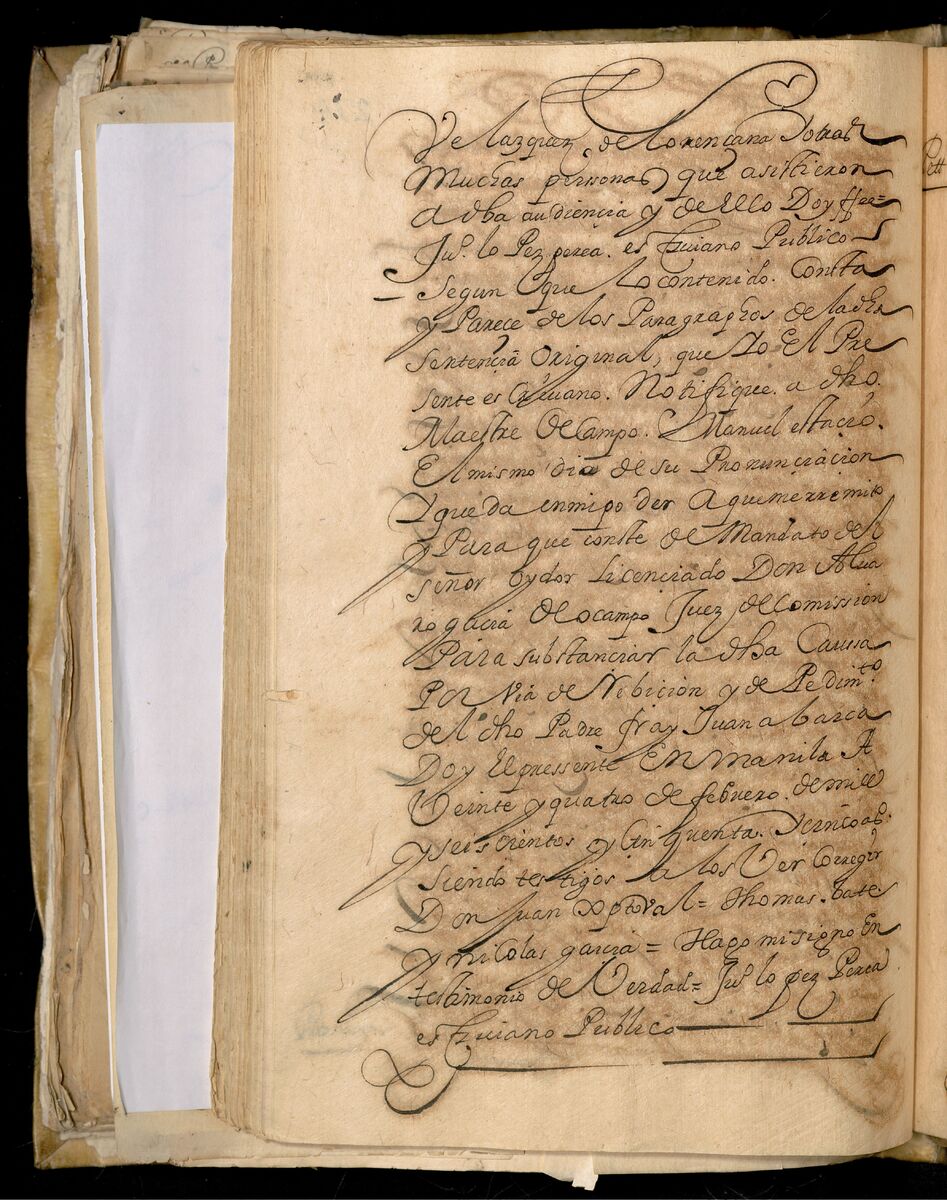 Velazquez de lorençana Y otras
Muchas personas que asistieron
a dha audiencia y de Ello Doy ffee=
Juº lo Pez perea. escriuano Publico
Segun que lo contenido. Consta
y Parece de los Paragraphos de la dha
sentencia original, que Yo El Pre
sente escriuano. Notifique. a dho.
Maestre de Campo. Manuel estacio.
El mismo dia de su Pronunciacion
Y queda en mi poder a que me rremito
y Para que conste de Mandato del
señor oydor Licenciado Don Alua
ro garcia de ocampo Juez de Comission
Para substanciar la dha Caussa
Por Via de Nibicion y de Pedimto.
del dho Padre fray Juan abarca
Doy El pressente En manila A
Veinte y quatro de febrero. de mill
y seiscientos y Cinquenta. Y cinco as.
siendo testigos a los Ver Corregir
Don Juan Xptoval = Thomas.
y nicolas garcia = Hago mi signo En
testimonio de Verdad = Juº lo pez Perea
escriuano Publico